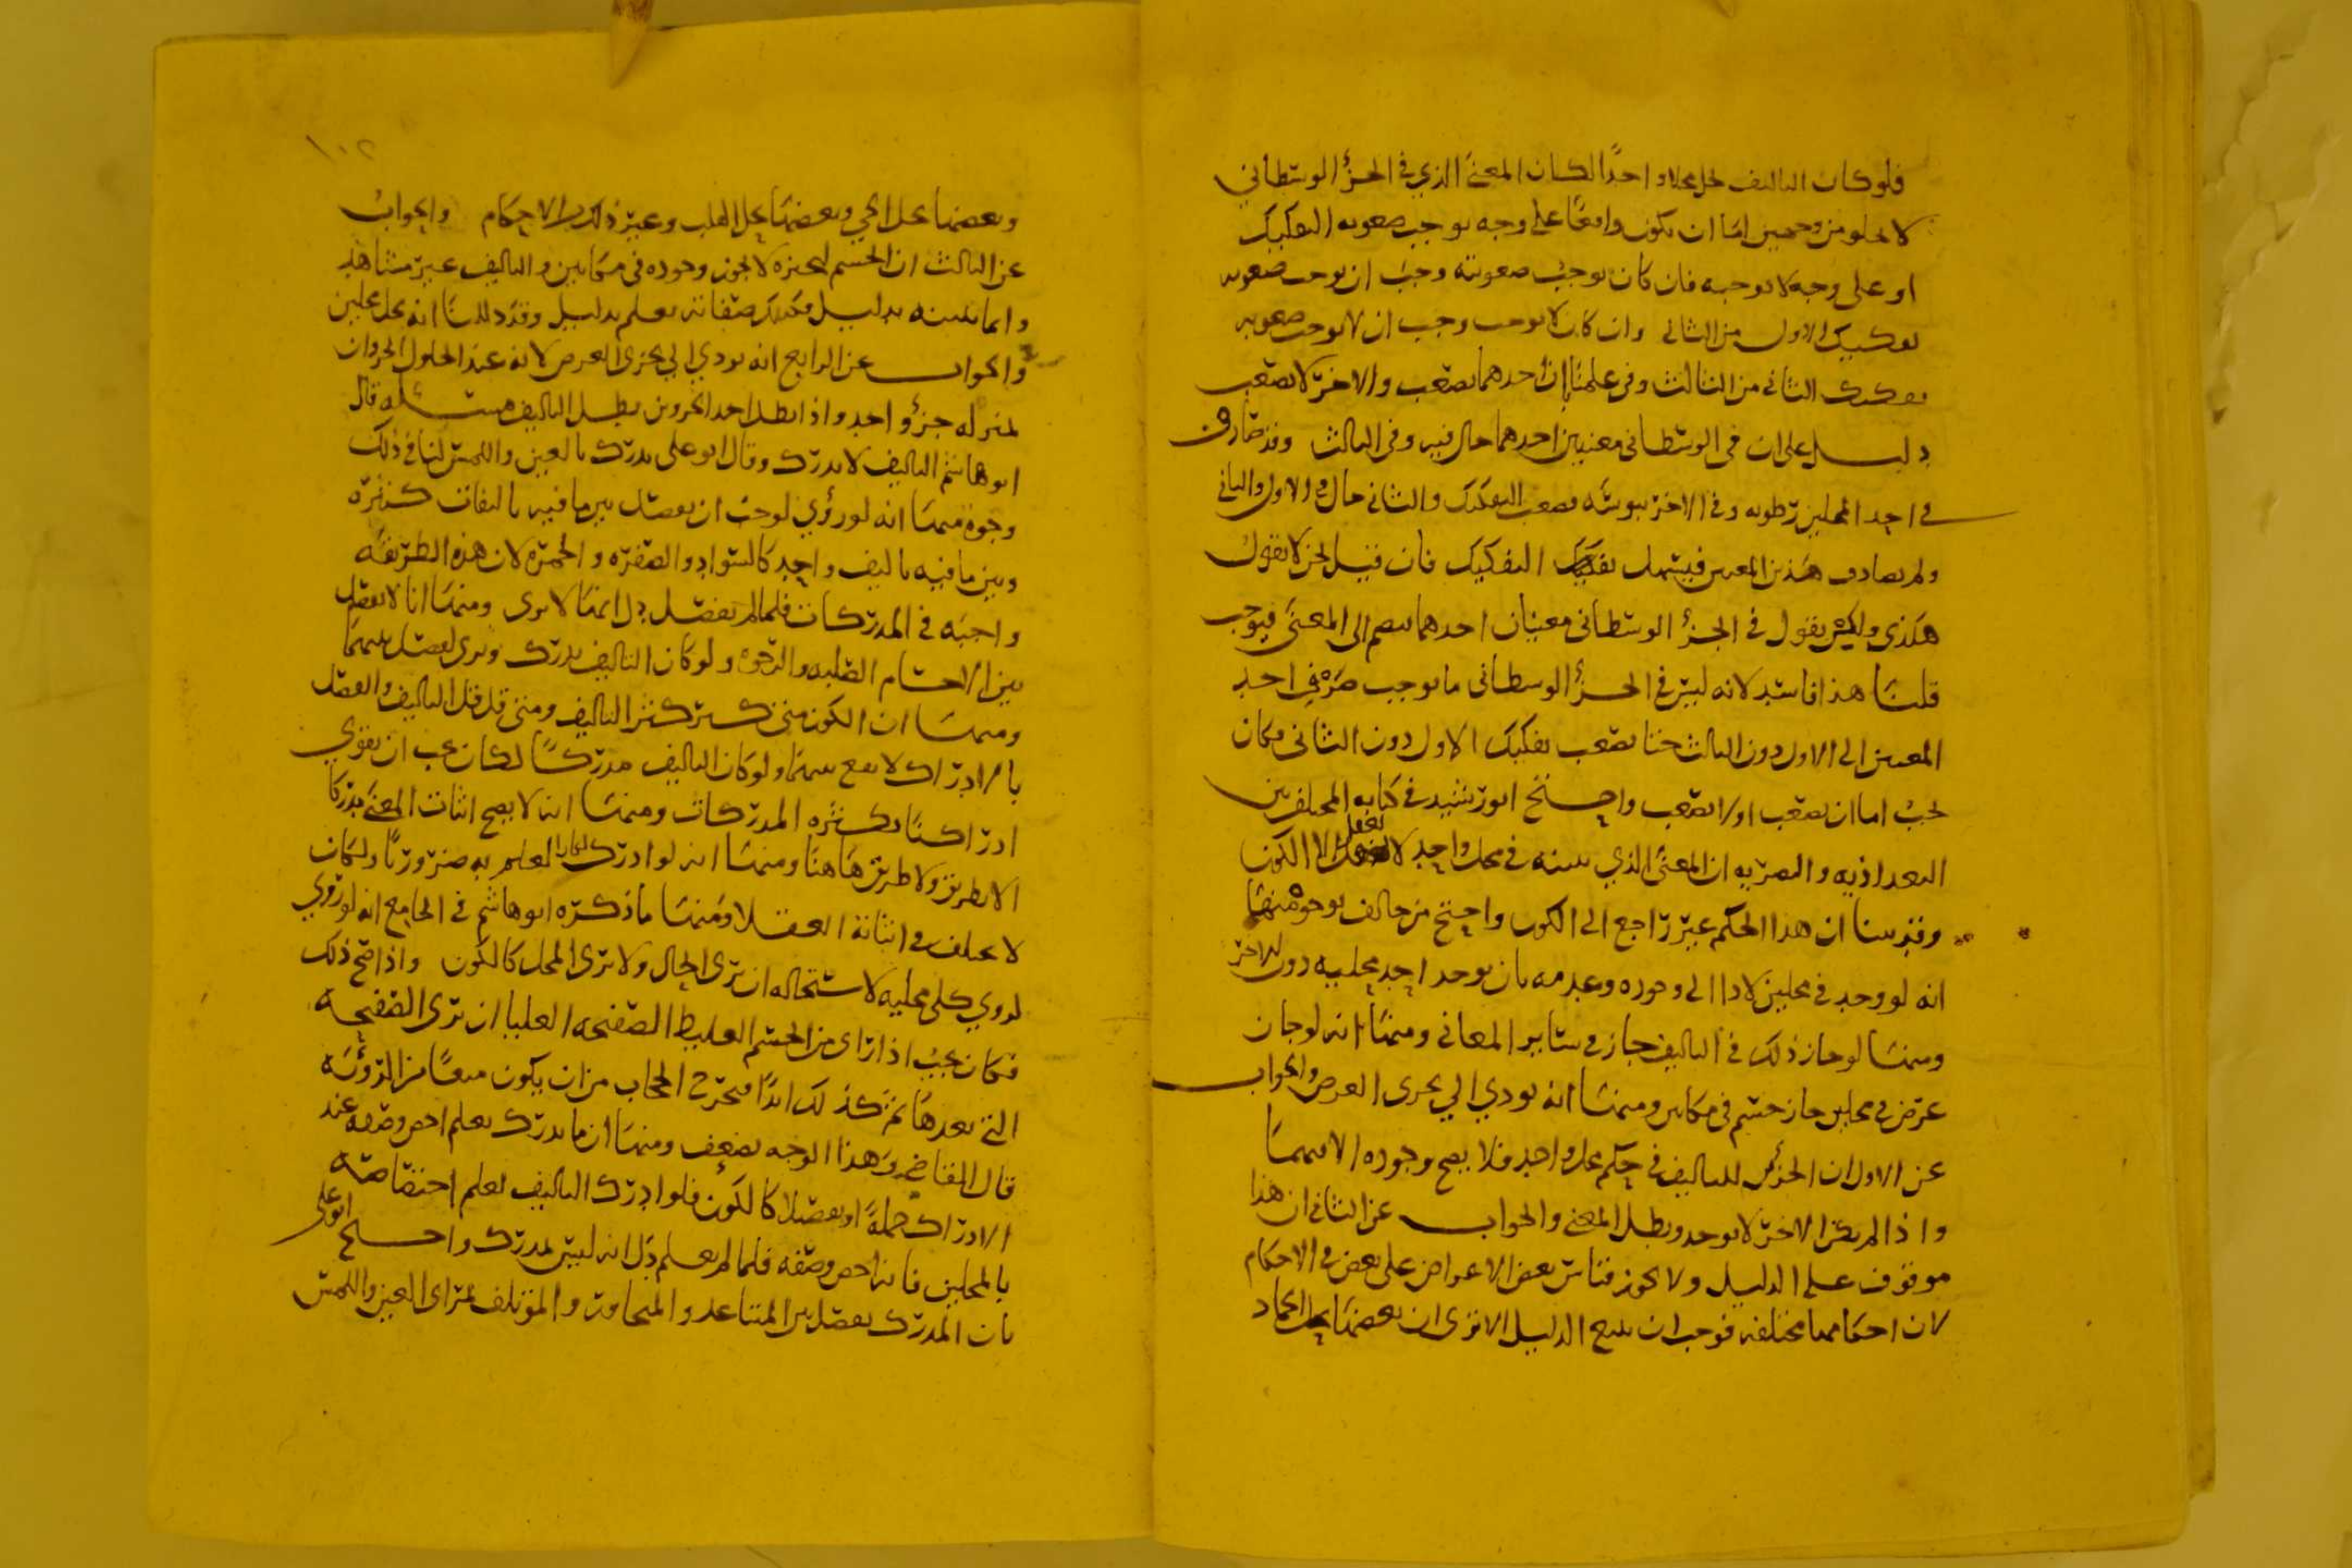 فلو كان التاليف يحل محلا واحدًا لكان المعنى الذي في الجزؤ الوسطاني
لا يخلو من وجهين اما ان يكون واقعًا على وجه يوجب صعوبه التفكيك
او على وجه لا يوجبه فان كان يوجب صعوبته وجب ان يوجب صعوبه
تفكيك الاول من الثاني وان كان لا يوجب وجب ان لا يوجب صعوبه
تفكيك الثاني من الثالث وفي علمنا ان احدهما يصعب والاخر لا يصعب
دليل على ان في الوسطاني معنيين احدهما حال فيه وفي الثالث وقد صارف
في احد المحلين رطوبه وفي الاخر يبوسه فصعب التفكيك والثاني حال في الاول والثاني
ولم يصادف هذين المعنيين فيسهل تفكيك التفكيك فان قيل نحن لا نقول
هكذى ولكن نقول في الجزؤ الوسطاني معنيان احدهما ينضم الى المعنى فيوجب
قلنا هذا فاسد لانه ليس في الجزؤ الوسطاني ما يوجب صرف احد
المعنيين الى الاول دون الثالث حتا يصعب تفكيك الاول دون الثاني فكان
يجب اما ان يصعب او لا يصعب واحتج ابو رشيد في كتابه المختلف بين
البغداذيه والبصريه ان المعنى الذي نثبته في محل واحد لا نعقل الا الكون
وقد بينا ان هذا الحكم غير راجع الى الكون واحتج من خالف بوجوه منها
انه لو وجد في محلين لادا الى وجوده وعدمه بان يوجد احد محليه دون الاخر
ومنها لو جاز ذلك في التاليف جاز في ساير المعاني ومنها انه لو جاز
عرض في محلين جاز جسم في مكانين ومنها انه يودي الى تجزي العرض والجواب
عن الاول ان الجزئين للتاليف في حكم محل واحد فلا يصح وجوده الا بهما
واذا لم يكن الاخر لا يوجد ويبطل المعنى والجواب عن الثاني ان هذا
موقوف على الدليل ولا يجوز قياس بعض الاعراض على بعض في الاحكام
لان احكامها مختلفه فوجب ان يتبع الدليل الا ترى ان بعضها يحل الجماد
١٠٢
وبعضها يحل الحي وبعضها يحل القلب وغير ذلك من الاحكام والجواب
عن الثالث ان الجسم لتحيزه لا يجوز وجوده في مكانين والتاليف غير مشاهد
وانما نثبته بدليل وكذلك صفاته تعلم بدليل وقد دللنا انه يحل محلين
والجواب عن الرابع انه يودي الى تجزي العرض لانه عند الحلول الجزوان
بمنزله جزؤ واحد واذا بطل احد الجزوين بطل التاليف مسئله قال
ابو هاشم التاليف لا يدرك وقال ابو على يدرك بالعين واللمس لنا في ذلك
وجوه منها انه لو رؤي لوجب ان يفصل بين ما فيه تاليفات كثيره
وبين ما فيه تاليف واحد كالسواد والصفره والحمره لان هذه الطريقه
واجبه في المدركات فلما لم يفصل دل انها لا ترى ومنها انا لا نفصل
بين الاجسام الصلبه والرخوه ولو كان التاليف يدرك ويرى لفصل بينهما
ومنها ان الكون متى كثر كثر التاليف ومتى قل قل التاليف والفصل
بالادراك لا يقع بينهما ولو كان التاليف مدركًا لكان يجب ان يقوي
ادراكنا بكثره المدركات ومنها انه لا يصح اثبات المعنى مدركًا
الا بطريق ولا طريق هاهنا ومنها انه لو ادرك لكان العلم به ضرورتا ولكان
لا يختلف في اثباته العقلا ومنها ما ذكره ابو هاشم في الجامع انه لو رؤي
لرؤي كلى محليه لاستحاله ان ترى الحال ولا ترى المحل كالكون واذا صح ذلك
فكان يجب اذا راى من الجسم الغليظ الصفحه العليا ان ترى الصفحه
التي بعدها ثم كذلك ابدًا فيخرج الحجاب من ان يكون منعًا من الرؤيه
قال القاضي وهذا الوجه يضعف ومنها ان ما يدرك يعلم اخص وصفه عند
الادراك جملةً او تفصيلا كالكون فلو ادرك التاليف لعلم اختصاصه
بالمحلين فانه اخص وصفه فلما لم يعلم دل انه ليس بمدرك واحتج ابو على
بان المدرك يفصل بين المتباعد والمتجاور والمؤتلف بمراى العين واللمس